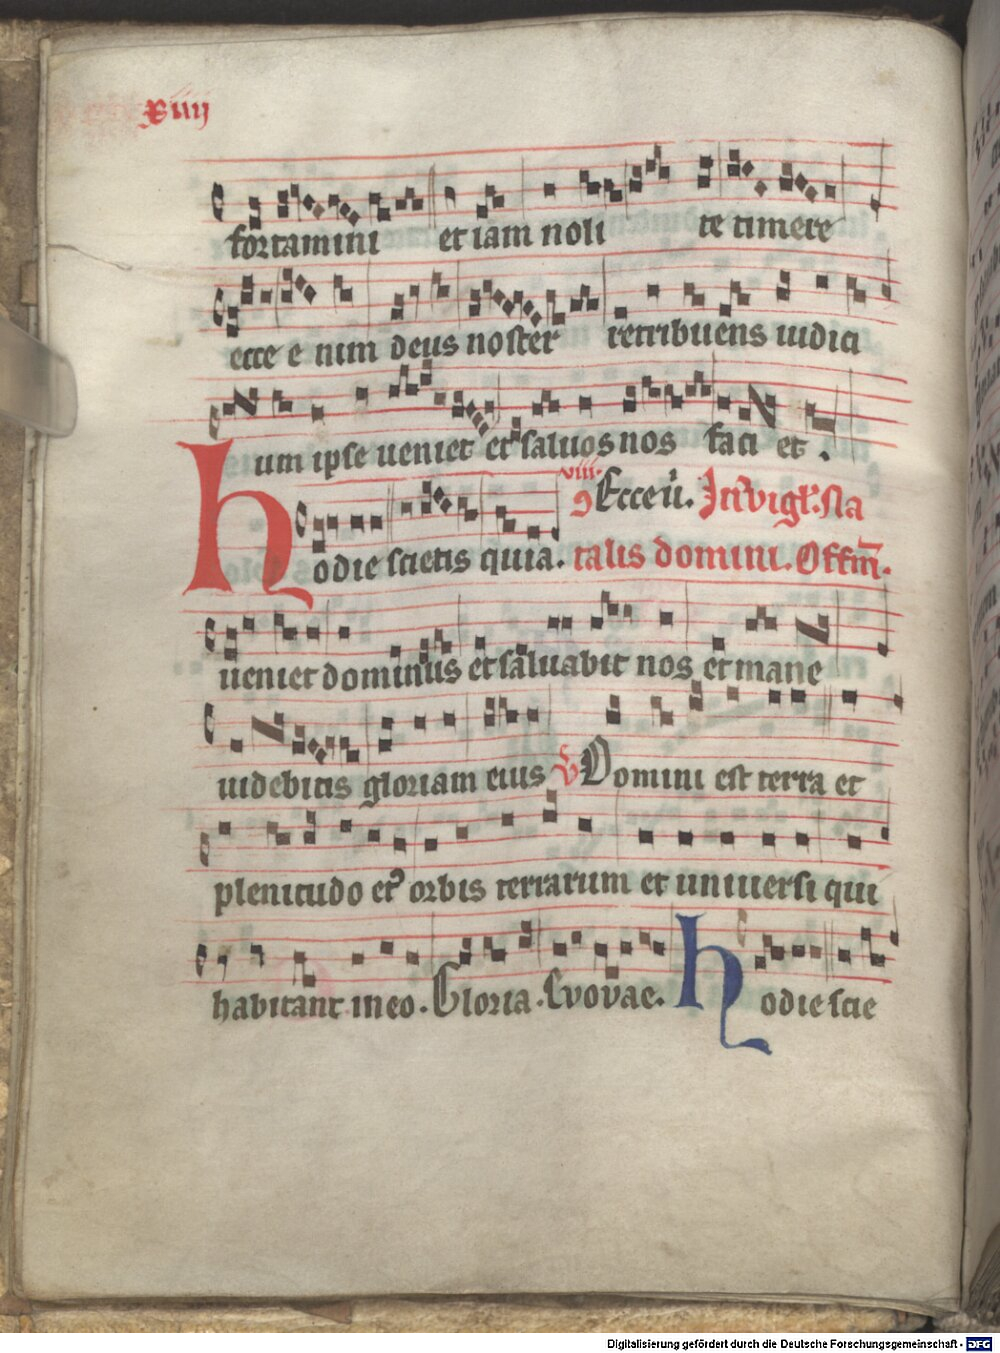 xiiij
fortamini et iam noli te timere
ecce e nim deus noster retribuens iudici
um ipse ueniet et saluos nos faci et .
viii.
Ecce ů. In vigł. Na
hodie scietis quia. talis domini. Offm̄.
ueniet dominus et saluabit nos et mane
uidebitis gloriam eius V Domini est terra et
plenitudo eiꝰ orbis terrarum et uniuersi qui
habitant in eo. Gloria. Evovae. hodie scie
Digitalisierung gefördert durch die Deutsche Forschungsgemeinschaft - DFG